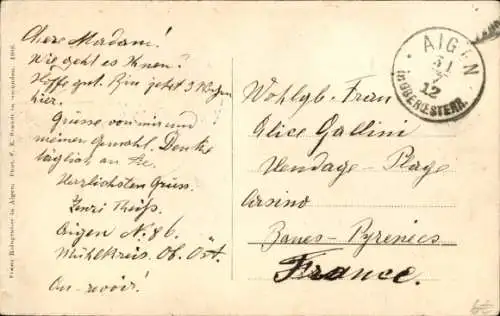 Chere Madam!
Wie geht es Ihnen?
Hoffe gut. Bin jetzt 3 Wochen
hier.
Grüsse von mir und
meinen Gemahl. Denke
täglich an Sie.
Herzlichsten Gruss
Theiss
Aigen N. 86
Mühlkreis Ob. Öst.
Au revoir!
AIGEN
31
7
12
IN OBERÖSTERR.
Wohlgb. Frau
Alice Gallini
Hendage-Plage
Casino
Basses-Pyrenees
France.
Franz in Aigen.